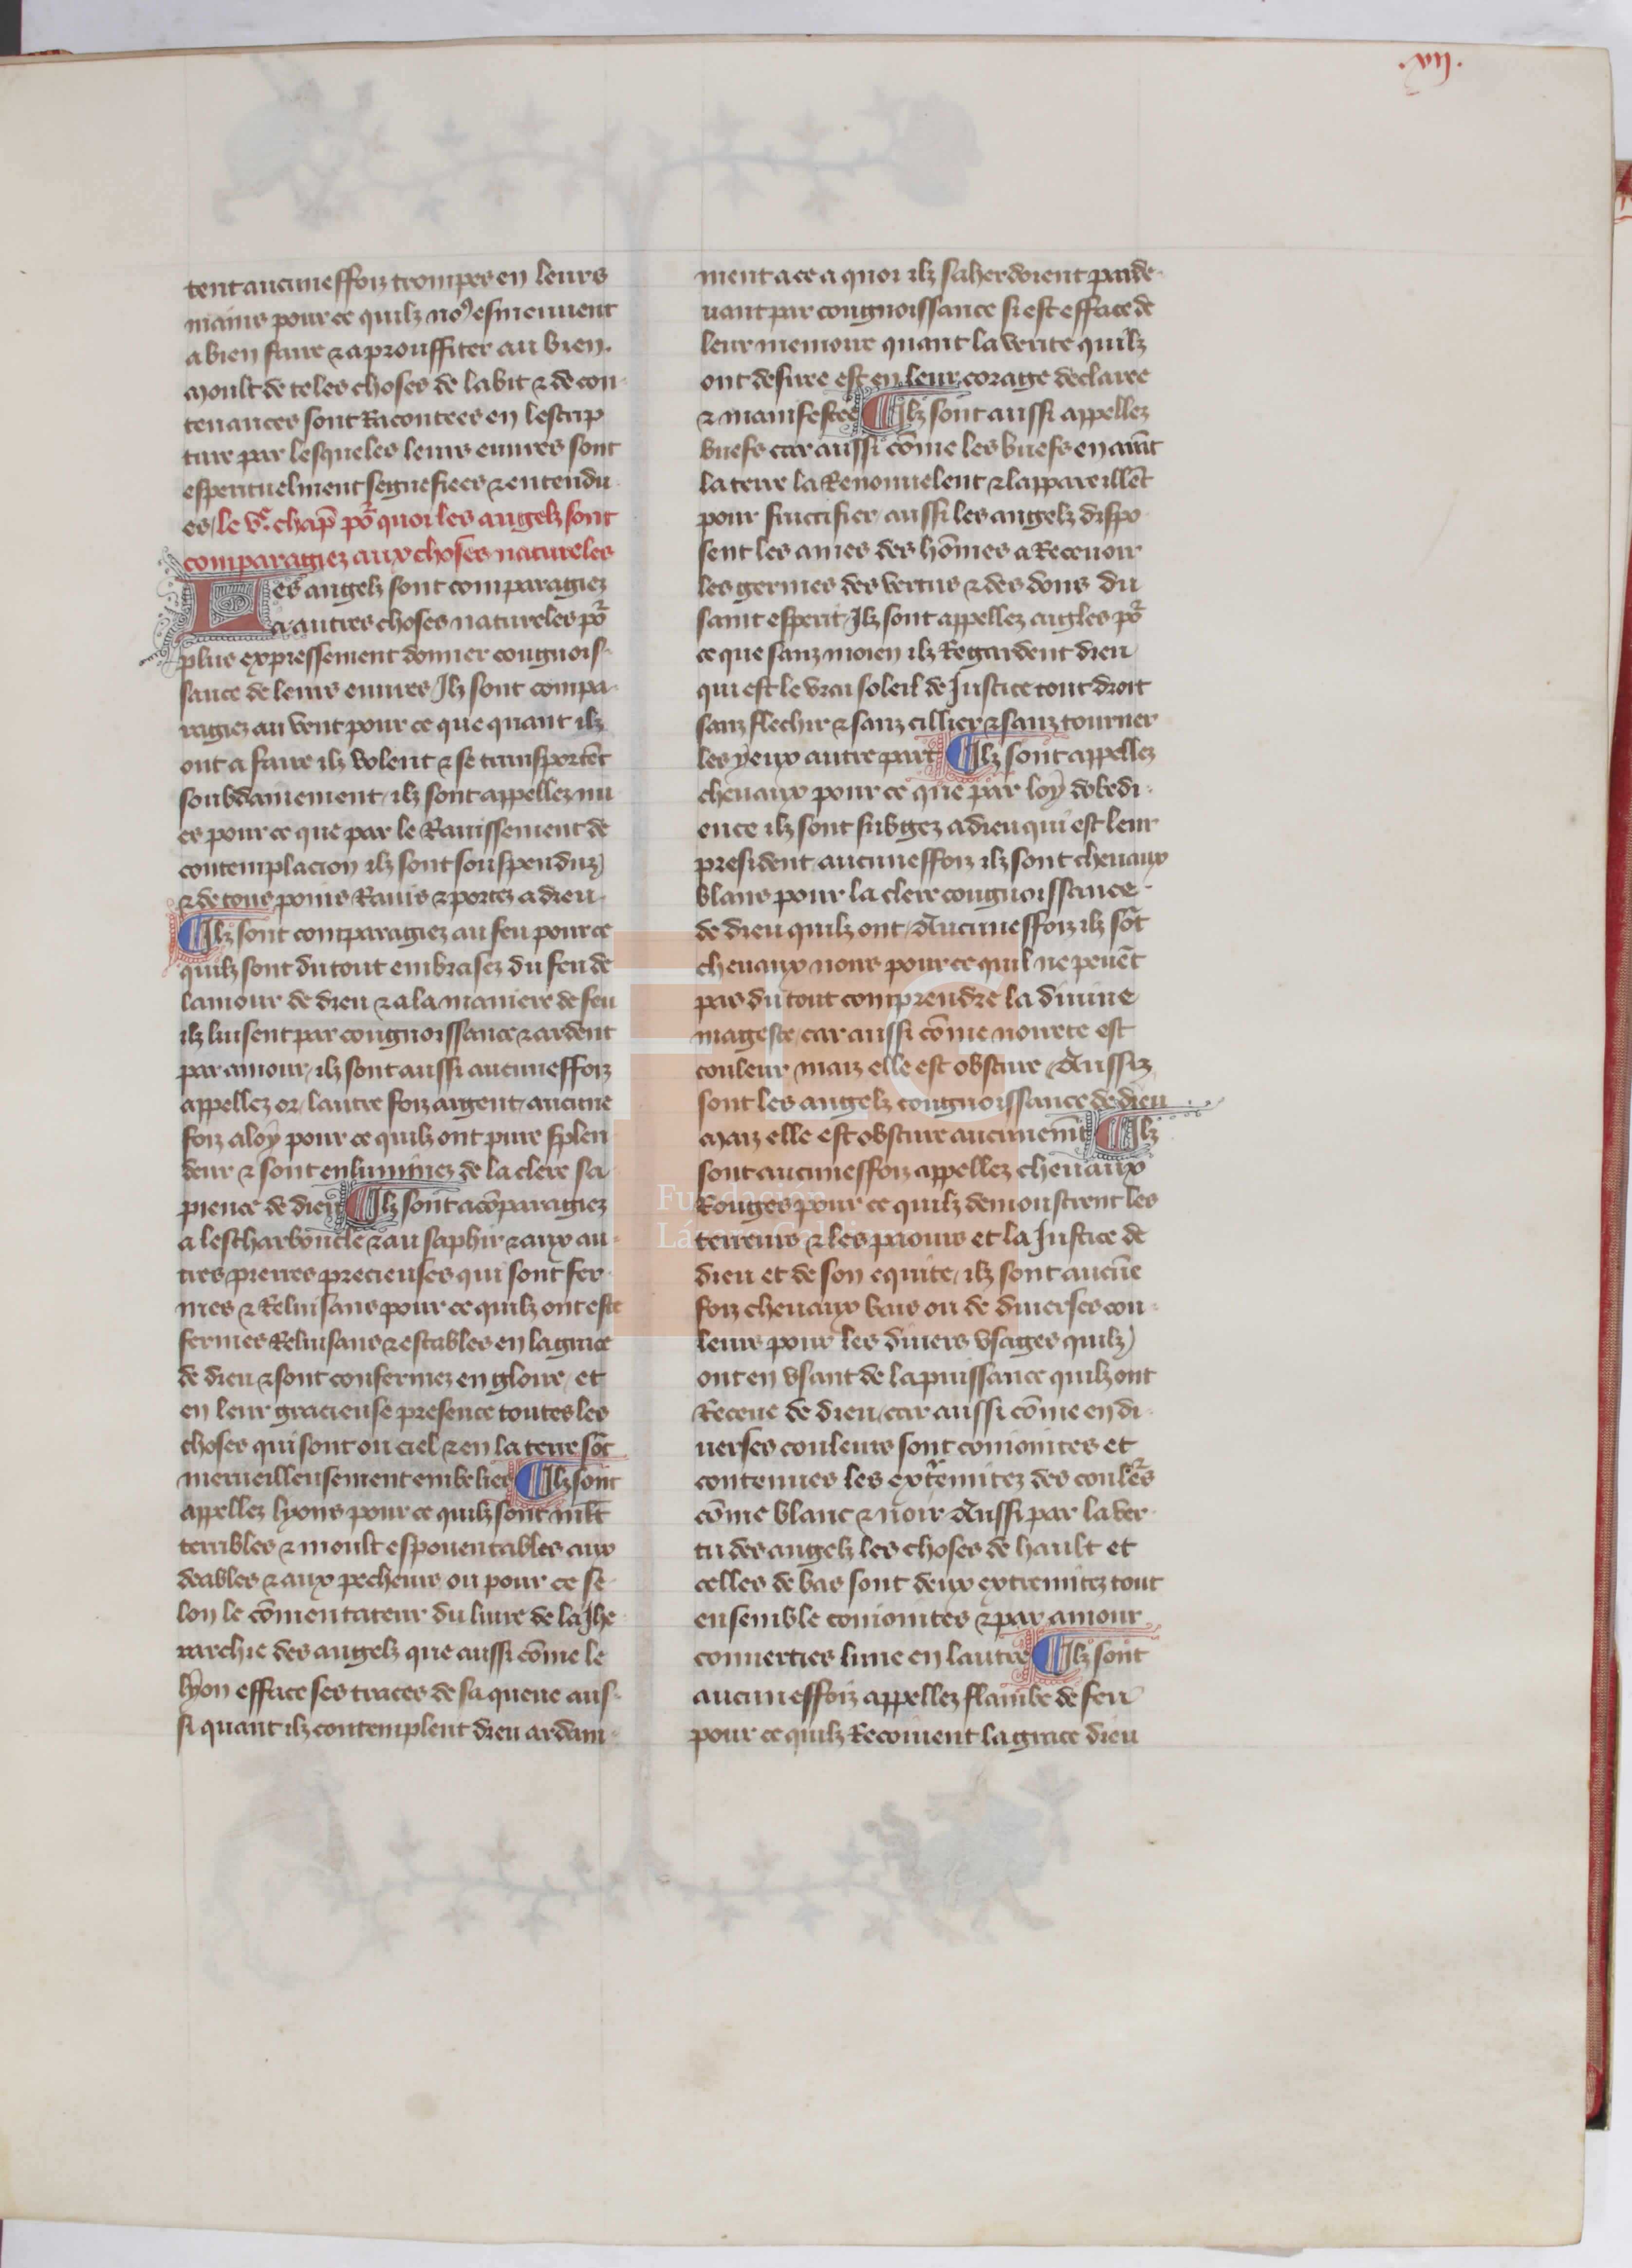 .xvij.
tent aucuneffoiz trompes en leurs
mains pour ce quilz noꝰ esmeuuent
a bien faire ⁊ a prouffiter au bien.
moult de teles choses de labit ⁊ de con
tenances sont Racontees en lescrip
ture par lesqueles leurs euures sont
esperituelment segnefiees ⁊ entendu
es / le v.e chap̄ po͛ quoi les angelz sont
comparagiez aux choses natureles
Les angelz sont comparagiez
a autres choses natureles po͛
plus expressement donner congnois
sance de leurs euures Ilz sont compa
ragiez au vent pour ce que quant ilz
ont a faire ilz volent ⁊ se transportēt
soubdainement / ilz sont appellez nu
es pour ce que par le Rauissement de
contemplacion ilz sont souspenduz
⁊ de tous poins Rauis ⁊ portez a dieu
Ilz sont comparagiez au feu pour ce
quilz sont du tout embrasez du feu de
lamour de dieu ⁊ a la maniere de feu
ilz luisent par congnoissance ⁊ ardent
par amour / ilz sont aussi aucuneffoiz
appellez or / lautre foiz argent / aucune
foiz aloy pour ce quilz ont pure splen
deur ⁊ sont enluminez de la clere sa
pience de dieu Ilz sont acōparagiez
a lescharboucle ⁊ au saphir ⁊ aux au
tres pierres precieuses qui sont fer
mes ⁊ Reluisans pour ce quilz ont este
fermes Reluisans ⁊ estables en la grace
de dieu ⁊ sont confermez en gloire / et
en leur gracieuse presence toutes les
choses qui sont ou ciel ⁊ en la terre sōt
merueilleusement embelies Ilz sont
appellez lyons pour ce quilz sont mlt̄
terribles ⁊ moult espouentables aux
deables ⁊ aux pecheurs ou pour ce se
lon le cōmentateur du liure de la Jhe
rarchie des angelz que aussi cōme le
lyon efface ses traces de sa queue aus
si quant ilz contemplent dieu ardam
ment a ce a quoi ilz saherdoient par de
uant par congnoissance si est efface de
leur memoire quant la verite quilz
ont desiree est en leur corage declaree
⁊ manifestee Ilz sont aussi appellez
buefs car aussi cōme les buefs en arāt
la terre la Renouuelent ⁊ lappareillēt
pour fructifier / aussi les angelz dispo
sent les ames des hōmes a Receuoir
les germes des vertus ⁊ des dons du
saint esperit / Ilz sont appellez aigles po͛
ce que sanz moien ilz Regardent dieu
qui est le vrai soleil de Justice tout droit
sanz flechir ⁊ sanz cillier ⁊ sanz tourner
les yeux autre part Ilz sont appellez
cheuaux pour ce que par loy dobedi
ence ilz sont subgez a dieu qui est leur
president / aucuneffoiz ilz sont cheuaux
blans pour la clere congnoissance
de dieu quilz ont / Aucuneffoiz ilz sōt
cheuaux noirs pour ce quil ne peuēt
pas du tout comprendre la diuine
mageste / car aussi cōme noirete est
couleur maiz elle est obscure / Aussi z
sont les angelz congnoissance de dieu
Maiz elle est obscure aucunemt̄ Ilz
sont aucuneffoiz appellez cheuaux
Rouges pour ce quilz demonstrent les
terreurs ⁊ les paours et la Justice de
dieu et de son equite / ilz sont aucūe
foiz cheuaux vairs ou de diuerses cou
leurs pour les diuers vsages quilz
ont en vsant de la puissance quilz ont
Receue de dieu / car aussi cōme en di
uerses couleurs sont conioinctes et
contenues les extremitez des coule͛s
cōme blanc ⁊ noir Aussi par la ver
tu des angelz les choses de hault et
celles de bas sont deux extremitez tout
ensemble conioinctes ⁊ par amour
conuerties lune en lautre Ilz sont
aucuneffoiz appellez flambe de feu
pour ce quilz Recoiuent la grace dieu
Fundación
Lázaro Galdiano